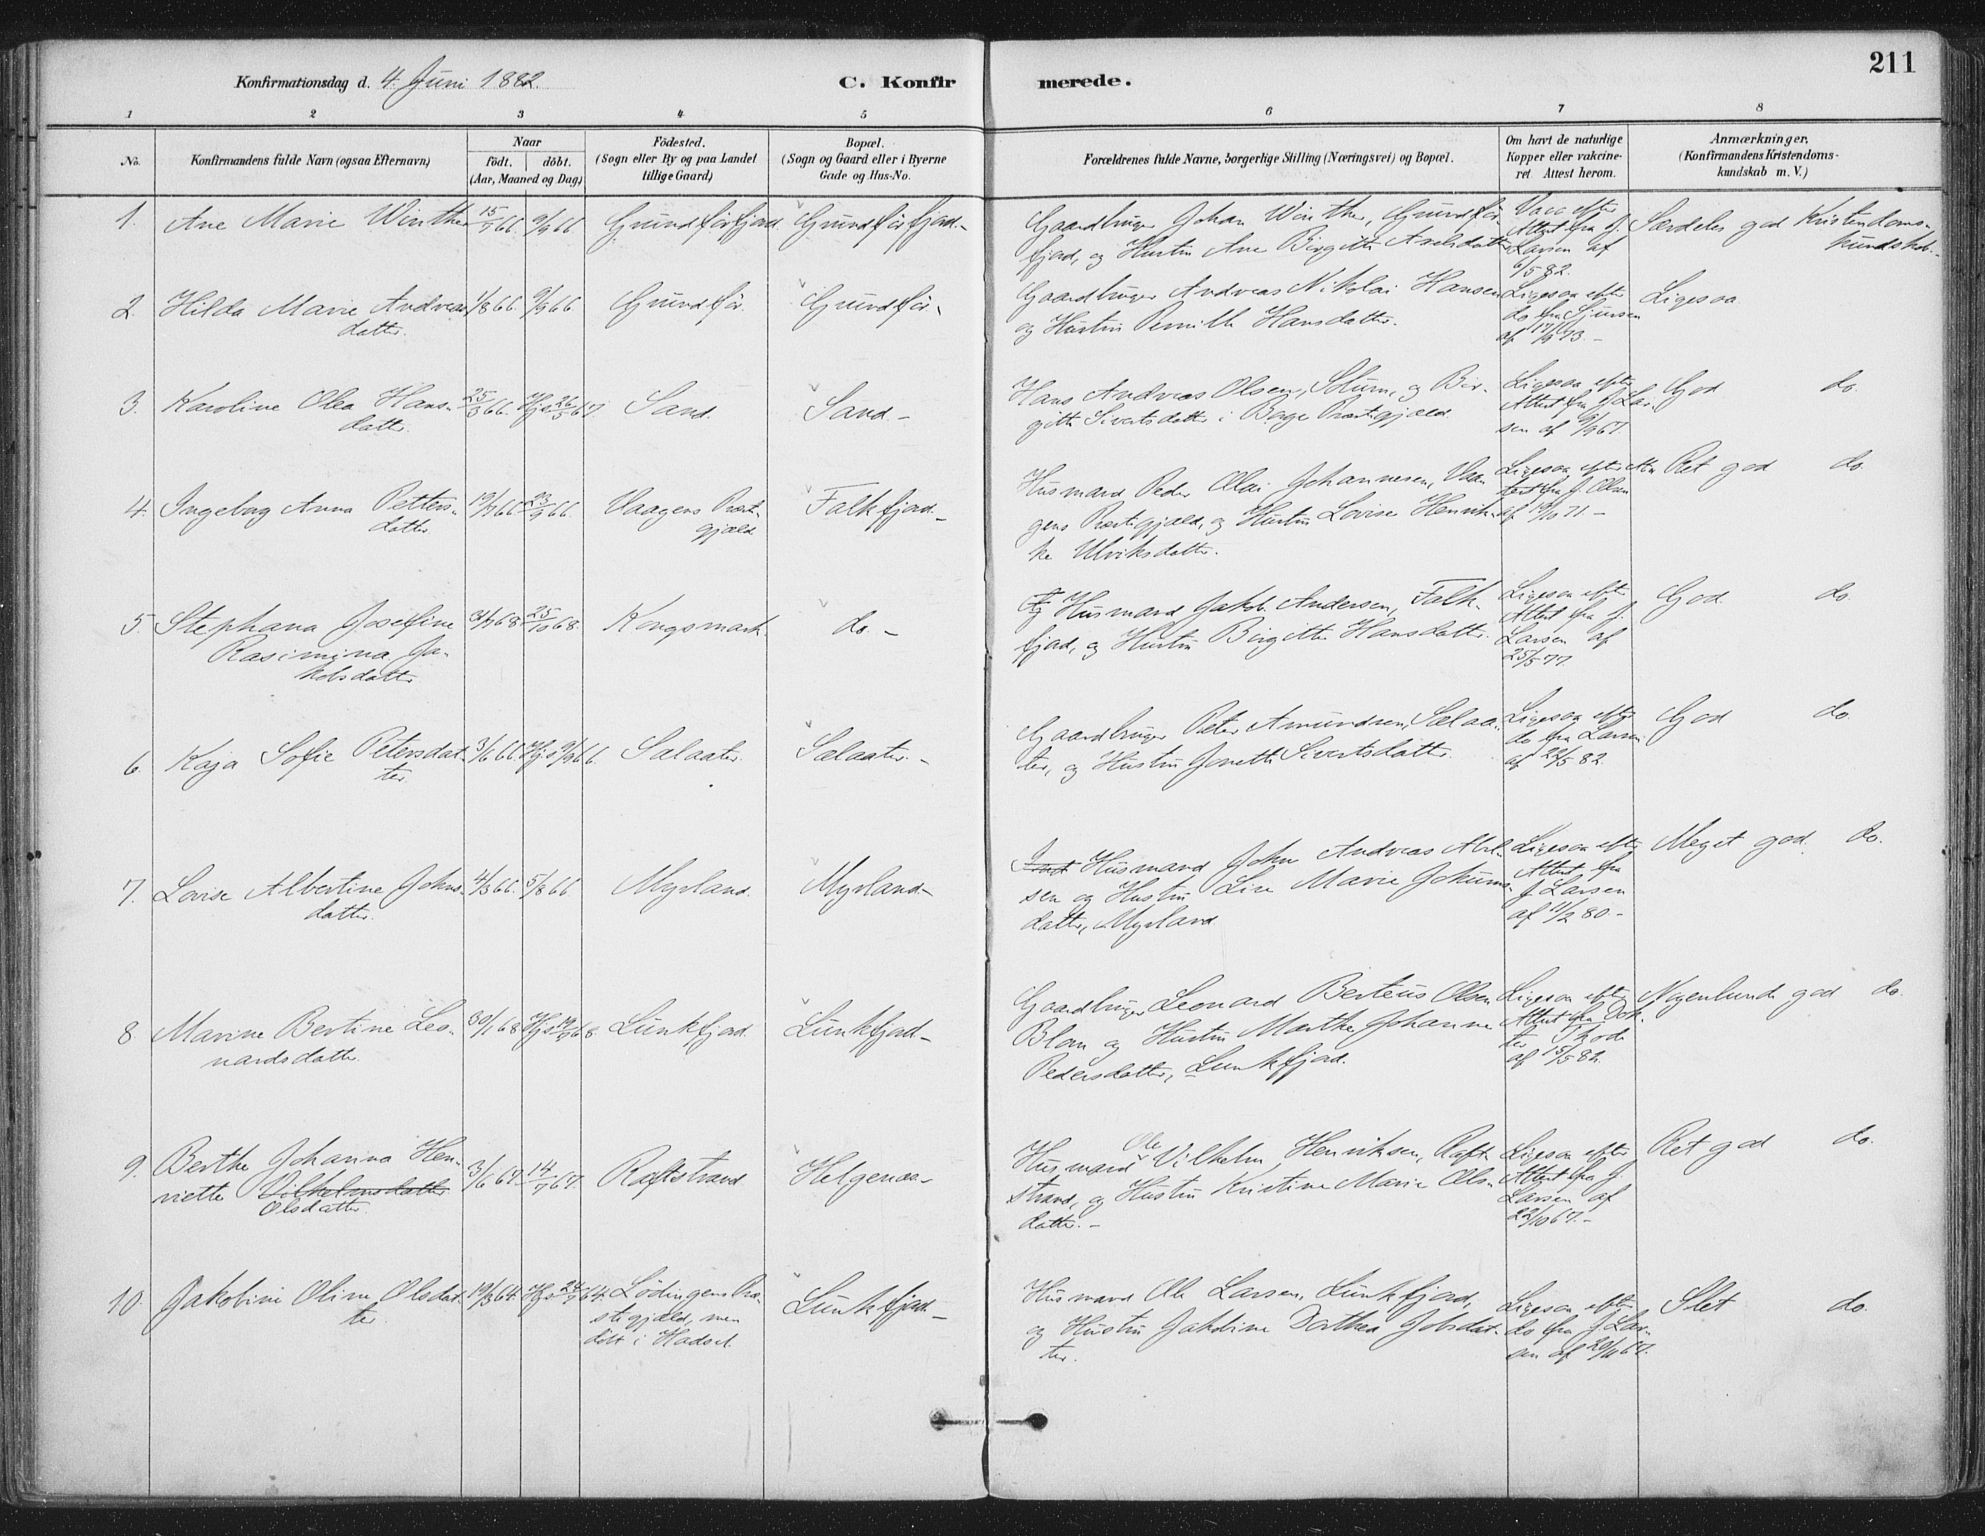 211
Konfirmationsdag d. 4. Juni 1882.
C. Konfir merede.
1 2 3 4 5 6 7 8
No.
Konfirmandens fulde Navn (ogsaa Efternavn)
Naar
födt. döbt.
(Aar, Maaned og Dag)
Födested.
(Sogn eller By og paa Landet
tillige Gaard)
Bopæl.
(Sogn og Gaard eller i Byerne
Gade og Hus-No.
Forældrenes fulde Navne, borgerlige Stilling (Næringsvei) og Bopæl.
Om havt de naturlige
Kopper eller vakcine-
ret Attest herom.
Anmærkninger.
(Konfirmandens Kristendoms-
kundskab m. V.)
1. Ane Marie Winther 15/7 66. 9/9 66 Grundførfjord Grundførfjord.-
Gaardbruger Johan Winther, Grundfør
fjord, og Hustru Ane Birgitte Axelsdatter
Vacc efter
Attest fra J.
Larsen af
6/5 82.
Særdeles god Kristendoms-
kundskab.-
2. Hilda Marie Andreas
datter. 1/8 66. 9/9 66. Grundfør. Grundfør.
Gaardbruger Andreas Nikolai Hansen
og Hustru Pernille Hansdatter.
Ligesaa efter
do fra Sjursen
af 17/9 73.-
Ligesaa
3. Karoline Olea Hans-
datter. 25/3 66. Hjs 26/5 67. Sand. Sand.-
Hans Andreas Olsen, Stum, og Bir-
gitte Sivertsdatter i Bøge Præstegjæld.
Ligesaa efter
Attest fra J Lar-
sen af 9/9 67.
God do.
4. Ingeborg Anna Petters-
datter 19/7 66 23/9 66. Vaagens Præste-
gjæld Falkfjord-
Husmand Peder Olai Johannesen, Vaa-
gens Præstegjæld, og Hustru Lovise Henrik-
ke Ulriksdatter.
Ligesaa efter At-
test fra J. Olsen
af 19/9 71.-
Ret god do.
5. Stephana Josefine
Rasimina Ja-
kobsdatter 31/7 68 25/10 68. Kongsmark. do.-
Husmand Jakob Andersen, Falk-
fjord, og Hustru Birgitte Hansdatter.
Ligesaa efter
Attest fra J.
Larsen af
25/5 77.
God do.
6. Kaja Sofie Petersdat-
ter 3/6 66. Hjs 9/9 66 Salaater. Sælaater.-
Gaardbruger Peter Amundsen, Sælaa-
ter, og Hustru Jonette Sivertsdatter.
Ligesaa efter
do fra Larsen
af 22/5 82.
God do.
7. Lovise Albertine Johns-
datter. 4/3 66. 5/8 66 Myrland. Myrland-
Husmand John Andreas Abel-
sen og Hustru Lise Marie Jokums-
datter, Myrland
Ligesaa efter
Attest fra
J Larsen
af 11/2 80-
Meget god. do.
8 Marine Bertine Leo-
nardsdatter. 30/1 68 Lunkfjord. Lunkfjord-
Gaardbruger Leonard Berteus Olsen
Blom og Hustru Marthe Johanne
Pedersdatter, Lunkfjord.
Ligesaa efter
Attest fra Dok-
ter Thode
af 15/5 82.
Nogenlunde god do.
9. Berthe Johanna Hen-
riette Vilhelmsdatter
Olsdatter. 3/6 67. 14/7 67. Raftstrand Helgenæs-
Husmand Ole Vilhelm Henriksen, Raft-
strand, og Hustru Kristine Marie Ols-
datter.-
Ligesaa efter
Attest fra J.
Larsen af
22/10 67.-
Ret god do.
10. Jakobine Oline Olsdat-
ter. 19/3 64. Lødingens Præ-
stegjæld, men
döbt i Hadsel. Lunkfjord-
Husmand Ole Larsen, Lunkfjord,
og Hustru Jakobine Dorthea Jobsdat-
ter.
Ligesaa efter
do fra J Lar-
sen af 20/11 67.
Slet do.